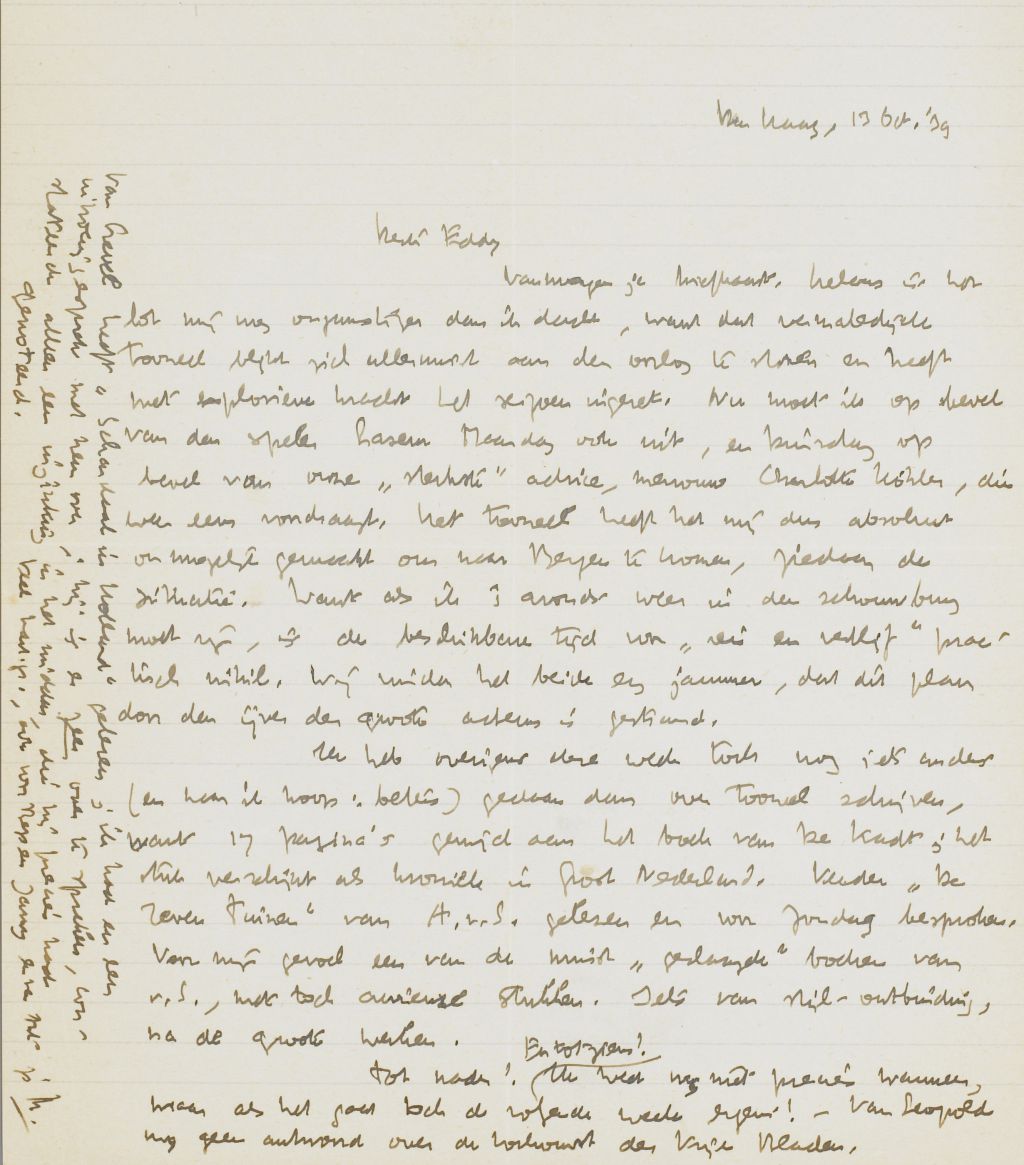 Den Haag, 13 Oct. '39
Beste Eddy
Vanmorgen je briefkaart. Helaas is het
lot mij nog ongunstiger dan ik dacht, want dat vermaledijde
tooneel blijkt zich allerminst aan den oorlog te storen en heeft
met explosieve kracht het seizoen ingezet. Nu moet ik op bevel
van den speler Laseur Maandag ook uit, en Dinsdag op
bevel van onze „sterkste" actrice, mevrouw Charlotte Köhler, die
weer eens voordraagt. Het tooneel heeft het mij dus absoluut
onmogelijk gemaakt om naar Bergen te komen, ziedaar de
situatie. Want als ik 's avonds weer in den schouwburg
moet zijn, is de beschikbare tijd voor „reis en verblijf" prac-
tisch nihil. Wij vinden het beide erg jammer, dat dit plan
door den ijver der groote acteurs is gestrand.
Ik heb overigens deze week toch nog iets anders
(en naar ik hoop: beters) gedaan dan over tooneel schrijven,
want 17 pagina's gewijd aan het boek van De Kadt; het
stuk verschijnt als kroniek in Groot Nederland. Verder „De
Zeven Tuinen" van A.v.S. gelezen en voor Zondag besproken.
Voor mijn gevoel een van de minst „geslaagde" boeken van
v.S., met toch curieuze stukken. Iets van stijl-ontbinding,
na de groote werken.
En tot ziens!
Tot nader! (Ik weet nog niet precies wanneer,
maar als het gaat toch de volgende week ergens! – Van Leopold
nog geen antwoord over de toekomst der Vrije Bladen.
je h.
Van Gravel heeft „Schandaal in Holland" gelezen; ik had er een
met hem over; hij is er zeer over te spreken, voor-
stakende alleen een inzinking in het midden, die hij precies had
genoteerd. Veel hartelijks, ook voor Bep en Jansy en van ons